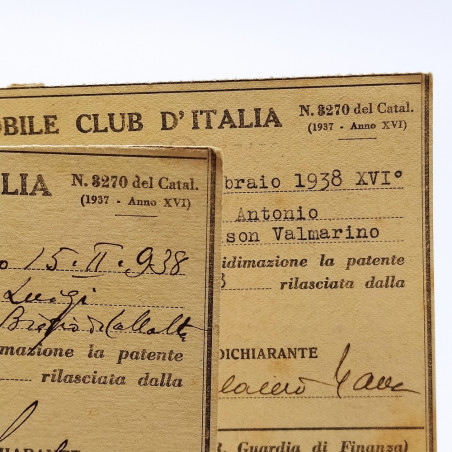 OBILE CLUB D'ITALIA
N. 8270 del Catal.
(1937 - Anno XVI)
braio 1938 XVI°
Antonio
son Valmarino
idimazione la patente
rilasciata dalla
DICHIARANTE
R. Guardia di Finanza)
ALIA
N. 8270 del Catal.
(1937 - Anno XVI)
o 15·II·938
Luigi
dimazione la patente
rilasciata dalla
CHIARANTE